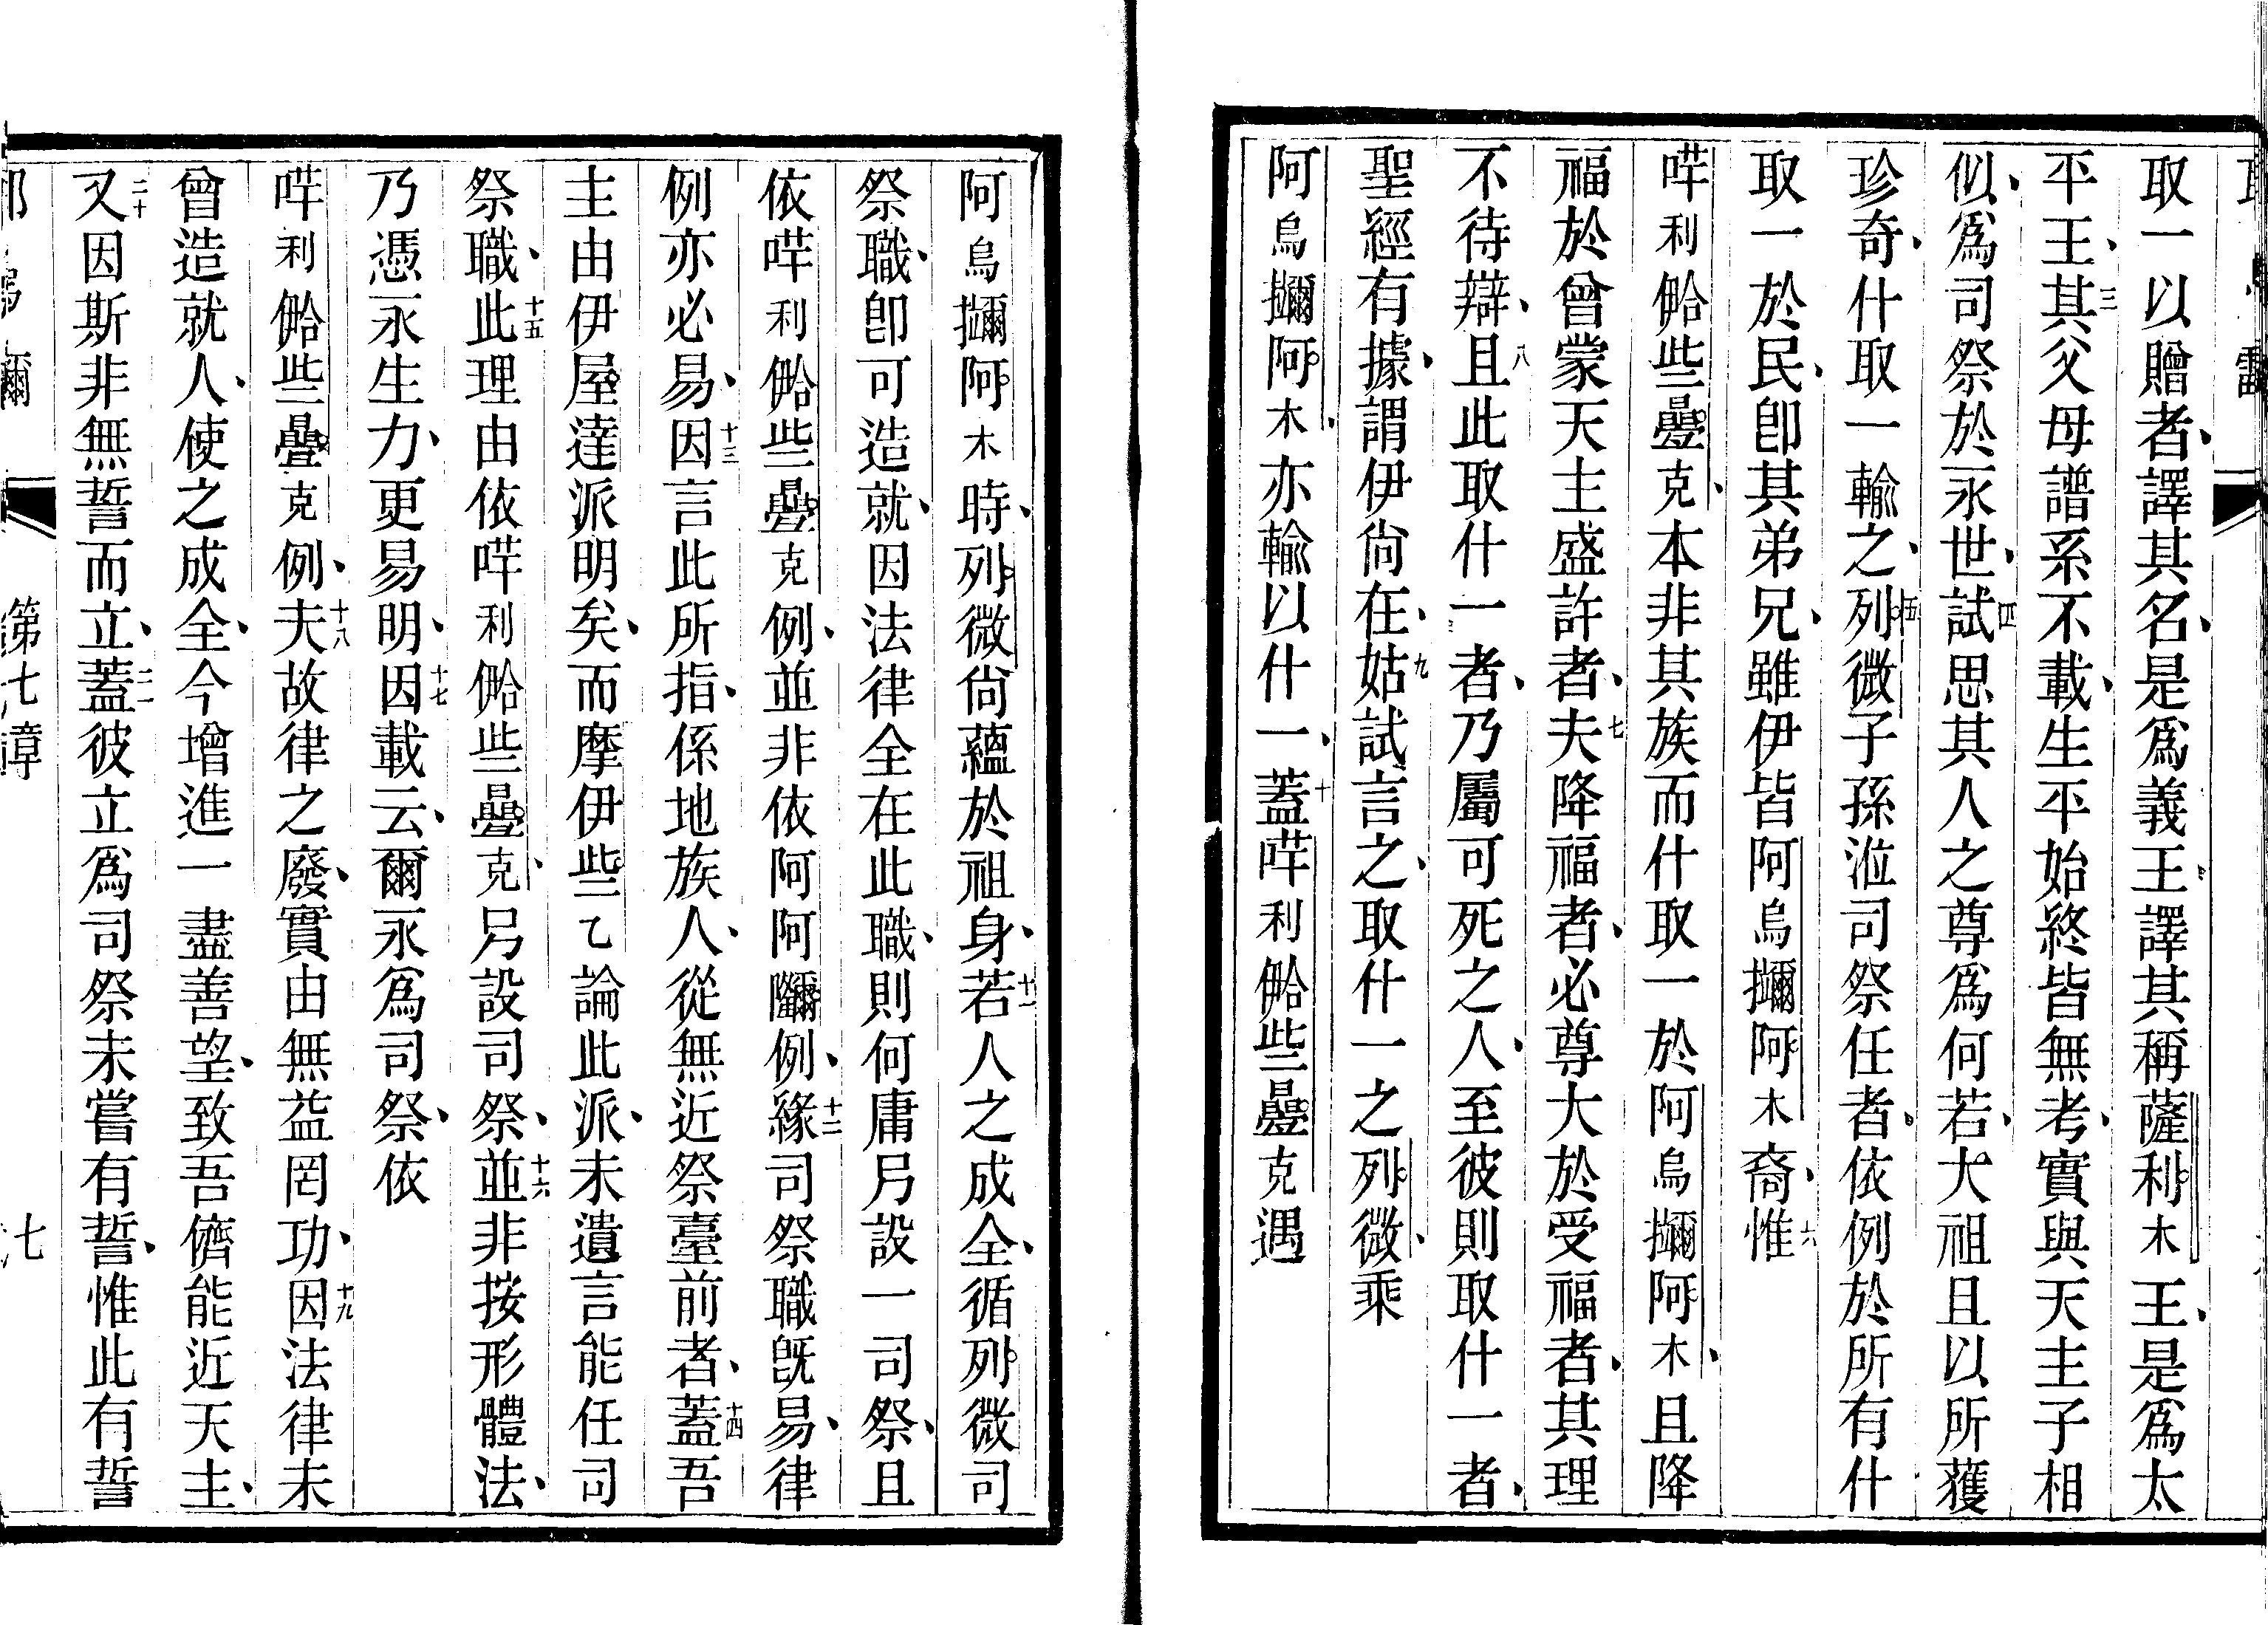 取一以贈者、譯其名、是爲義王譯其稱薩利木王、是爲太
平王、三其父母譜系不載、生平始終皆無考、實與天主子相
似、爲司祭於永世、四試思其人之尊爲何若、大祖且以所獲
珍奇、什取一輸之、五列微子孫涖司祭任者、依例於所有什
取一於民、卽其弟兄、雖伊皆阿烏擟阿木裔、六惟
哶利𠌥些曡克、本非其族而什取一於阿烏擟阿木、且降
福於曾蒙天主盛許者、七夫降福者、必尊大於受福者、其理
不待辯、八且此取什一者、乃屬可死之人、至彼則取什一者、
聖經有據、謂伊尙在、九姑試言之、取什一之列微、乘
阿烏擟阿木、亦輸以什一、十蓋哶利𠌥些曡克遇
阿烏擟阿木時、列微尙蘊於祖身、十一若人之成全、循列微司
祭職、卽可造就、因法律全在此職、則何庸另設一司祭、且
依哶利𠌥些曡克例、並非依阿阿𨷻例、十二緣司祭職旣易、律
例亦必易、十三因言此所指、係地族人、從無近祭臺前者、十四蓋吾
主由伊屋達派明矣、而摩伊些乙論此派、未遺言能任司
祭職、十五此理由依哶利𠌥些曡克、另設司祭、十六並非按形體法、
乃憑永生力、更易明、十七因載云、爾永爲司祭、依
哶利𠌥些曡克例、十八夫故律之廢、實由無益罔功、十九因法律未
曾造就人、使之成全、今增進一盡善望、致吾儕能近天主、
二十又因斯非無誓而立、二一蓋彼立爲司祭未嘗有誓、惟此有誓
第七章
七